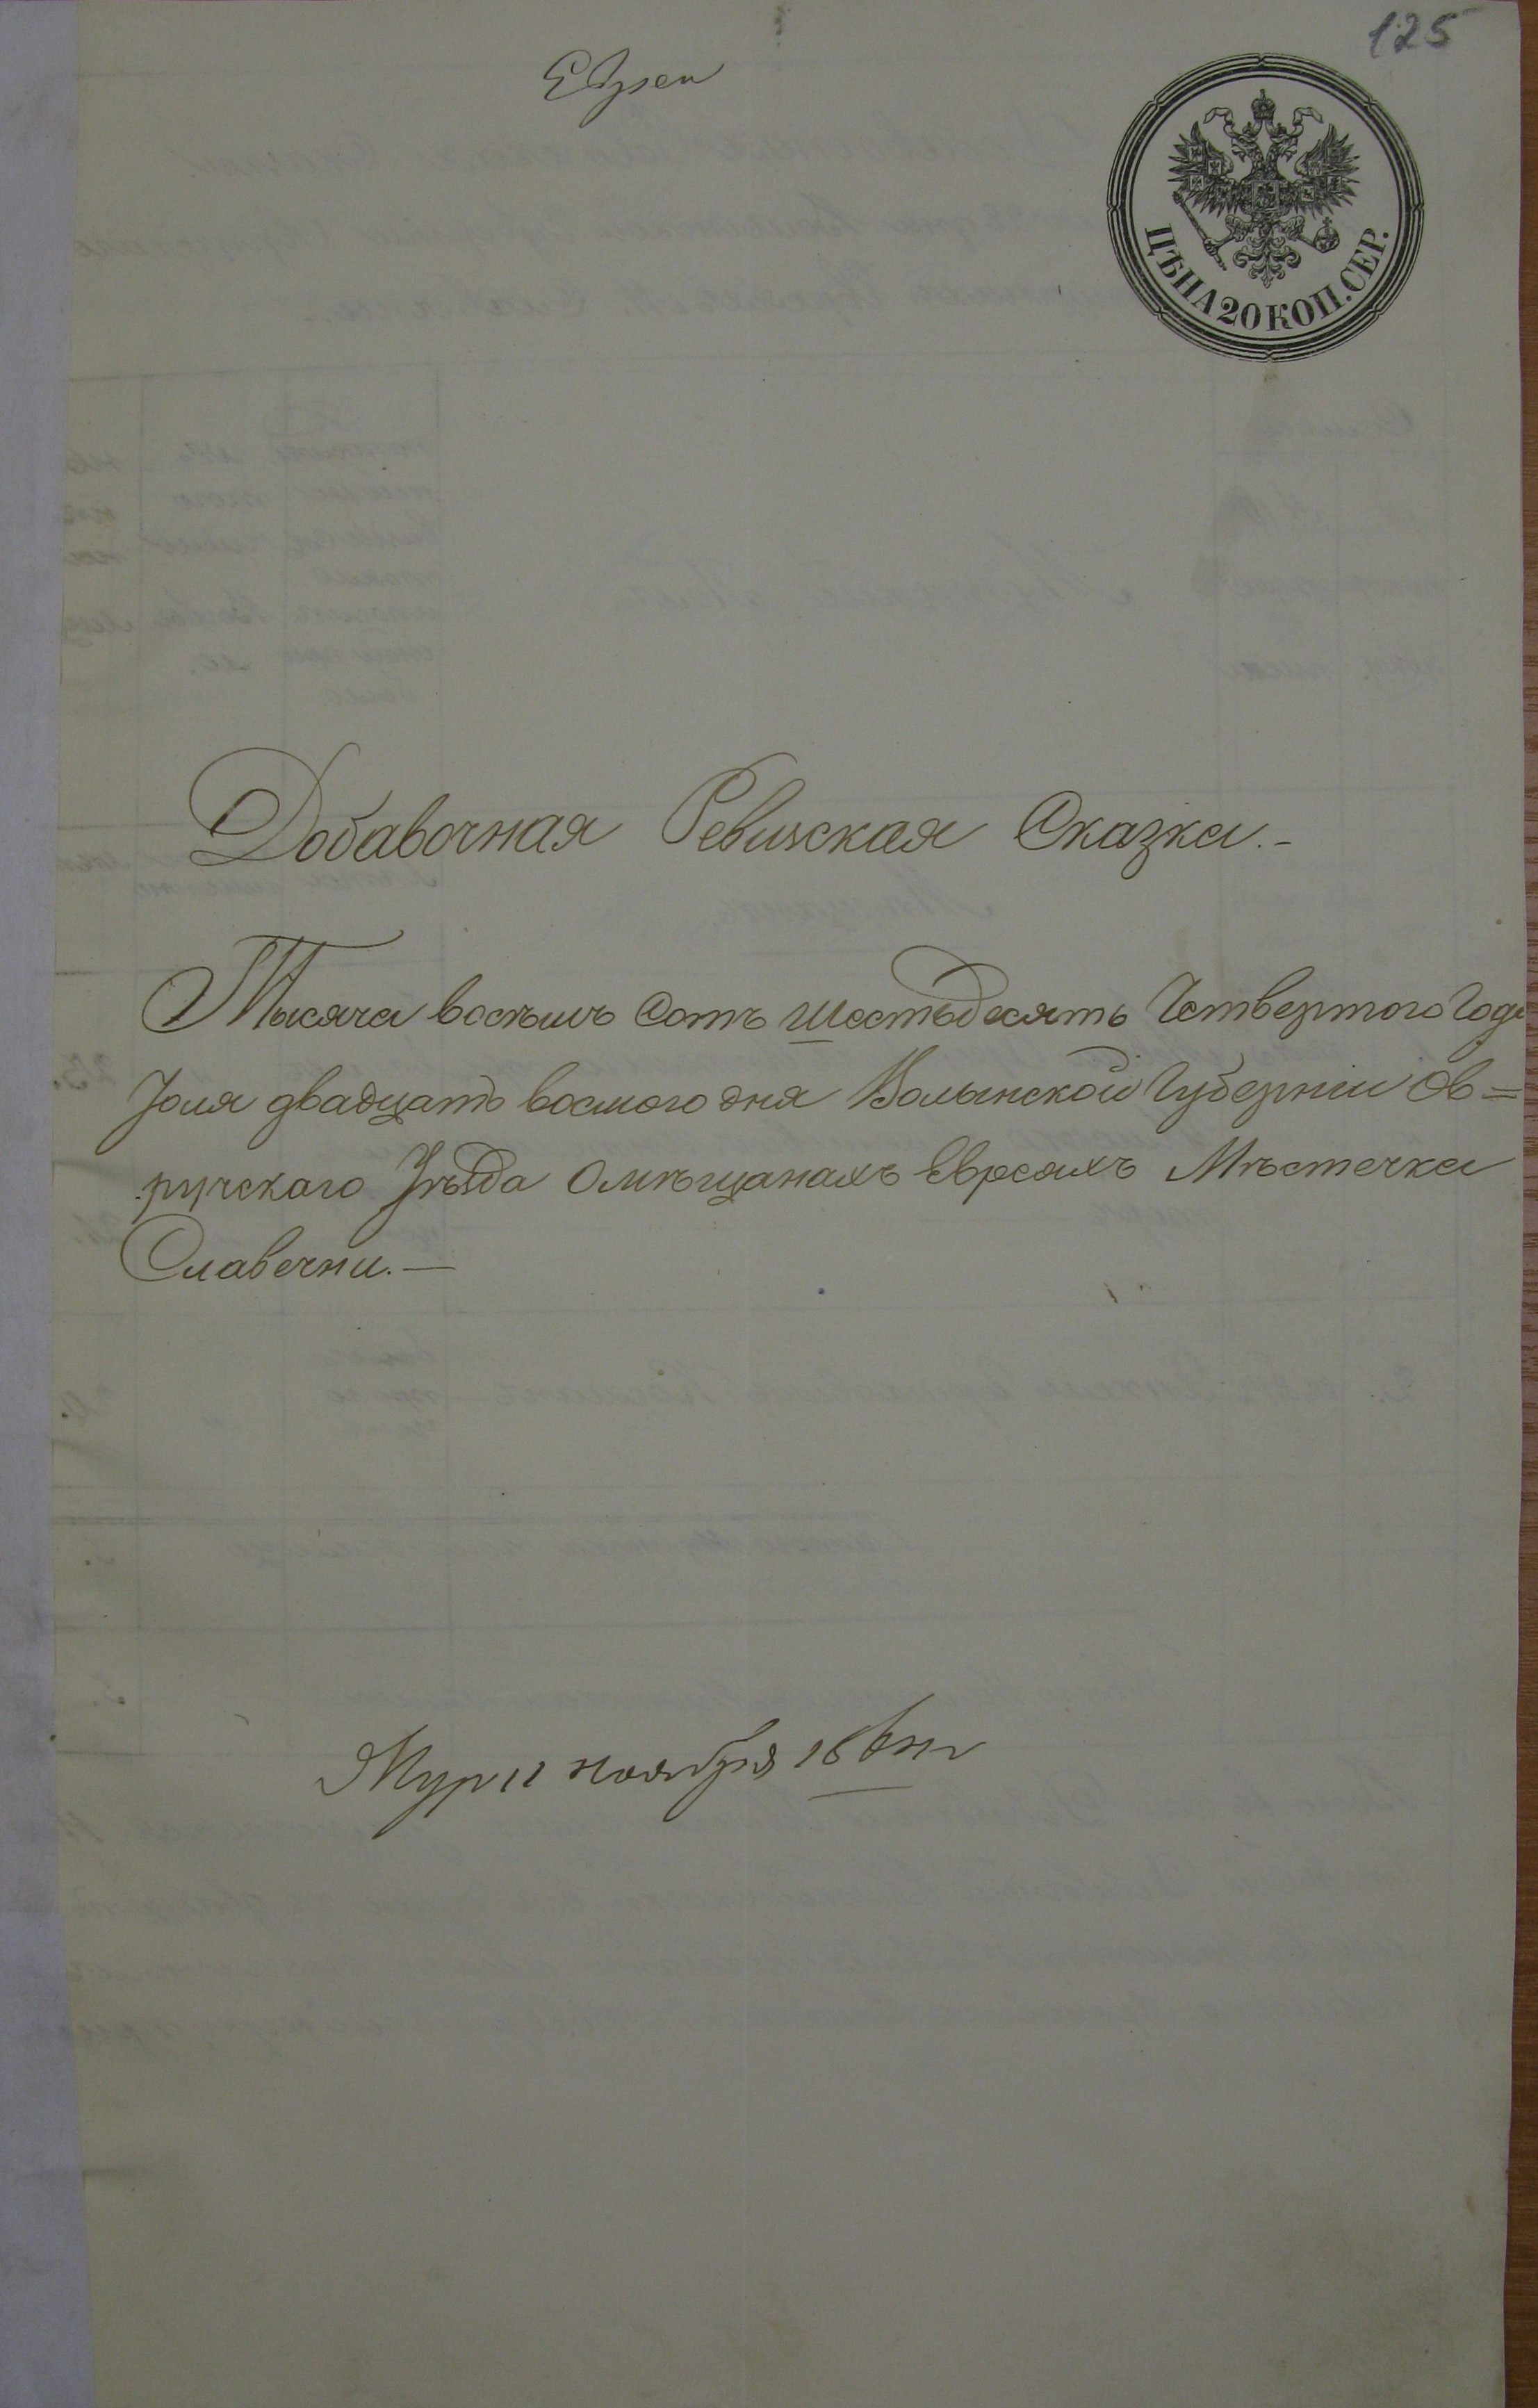 125
ЦѢНА 20 КОП. СЕР.
Добавочная Ревизская Сказка.-
Тысяча восѣмъ Сотъ шестьдесятъ Четвертого Года
Іюля двадцать восмого дня Волынской Губерніи Ов=
ручского Уѣзда О мѣщанахъ Евреяхъ Мѣстечка
Славечни.—
11 ноября